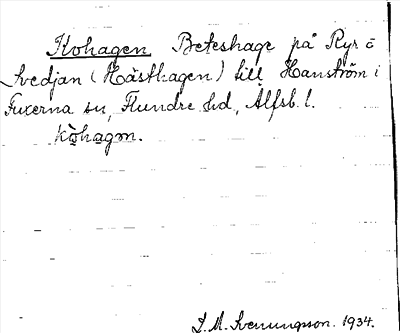 Kohagen Beteshage på Ryr o
Svedjan (Hästhagen) till Hanström i
Fuxerna sn, Flundre hd, Älfsb. l.
kọ̀hagɷn.
D. M. Svenungsson. 1934.